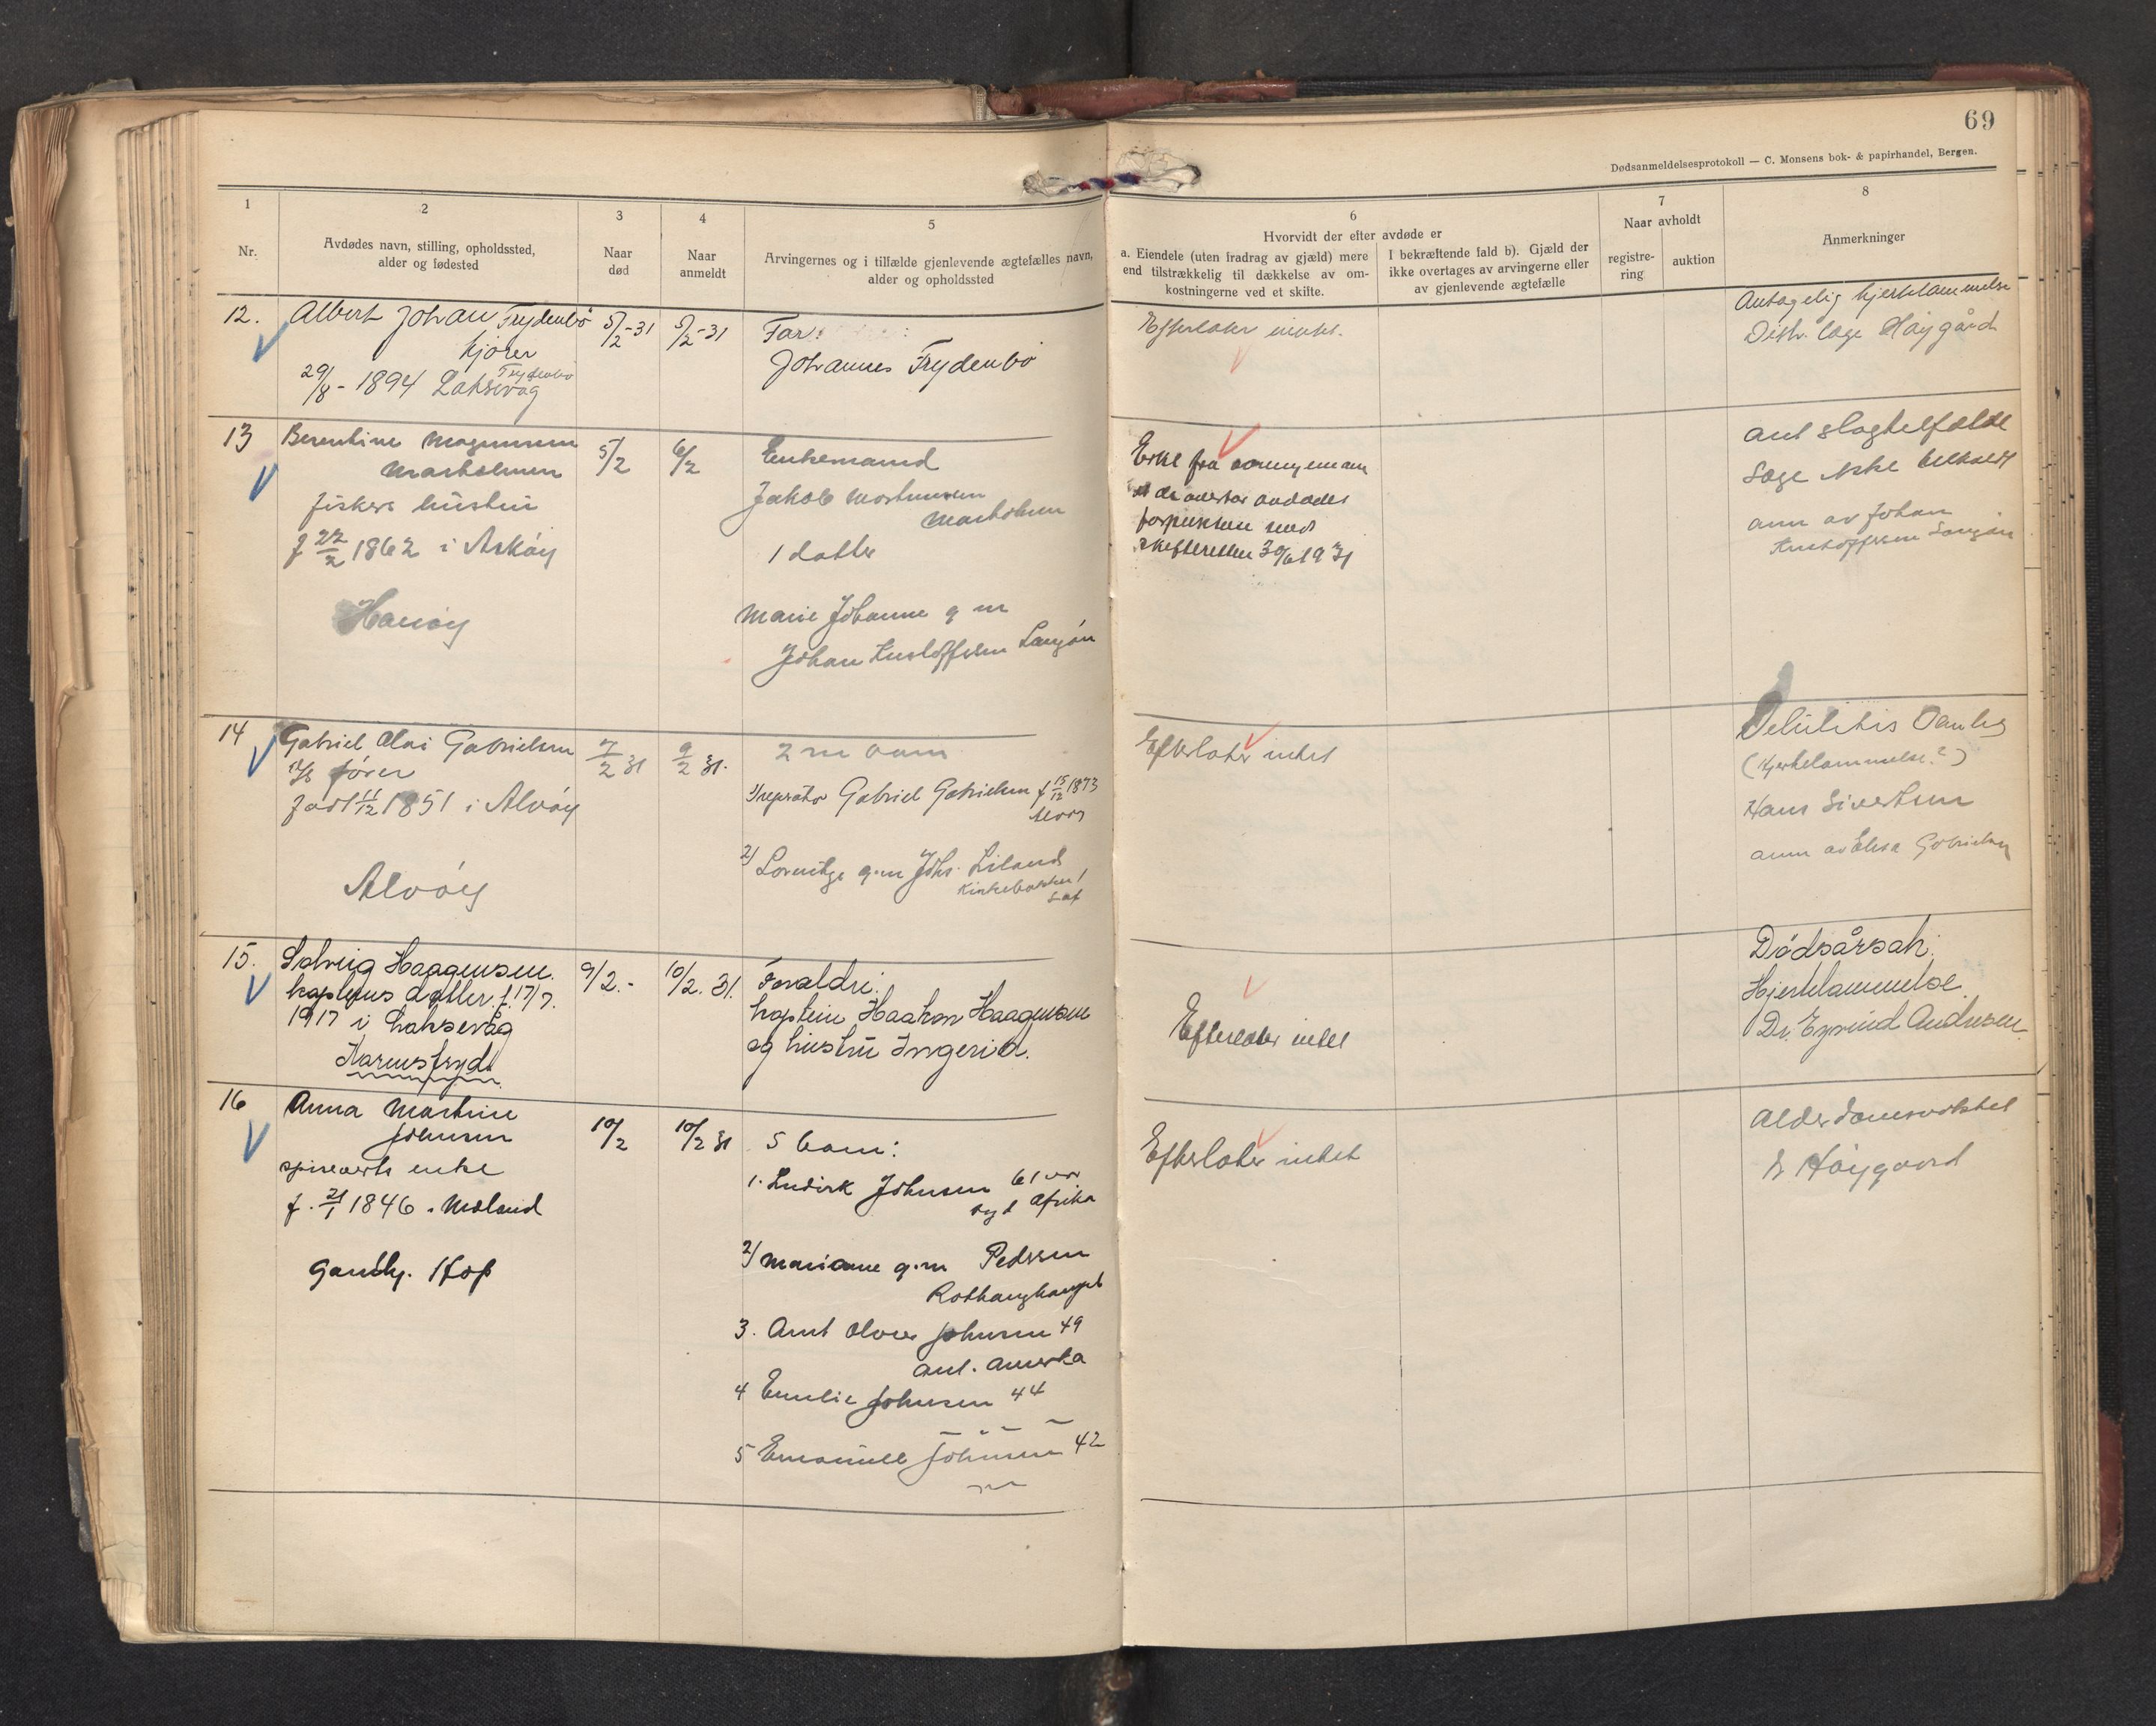 69
Dødsanmeldelsesprotokoll — C. Monsens bok- & papirhandel, Bergen.
1
Nr.
2
Avdødes navn, stilling, opholdssted,
alder og fødested
3
Naar
død
4
Naar
anmeldt
5
Arvingernes og i tilfælde gjenlevende ægtefælles navn,
alder og opholdssted
6
Hvorvidt der efter avdøde er
a. Eiendele (uten fradrag av gjæld) mere
end tilstrækkelig til dækkelse av om-
kostningerne ved et skifte.
I bekræftende fald b). Gjæld der
ikke overtages av arvingerne eller
av gjenlevende ægtefælle
7
Naar avholdt
registre-
ring
auktion
8
Anmerkninger
12.
Albert Johan Frydenbö
kjörer
29/8 - 1894 Laksevåg
Frydenbö
5/2-31
5/2-31
Far:
Johannes Frydenbö
Efterlater intet.
Antagelig hjertelammelse
Distr. læge Høygård
13
Berentine Magnussen
Marholmen
fiskers hustru
f 22/2 1862 i Askøy
Hanøy
5/2
6/2
Enkemand
Jakob
Marholmen
1 datter
Marie Johanne g m
Johan Kristoffersen
avdødes
skifteretten 30/6 1931
ant slagtilfælde
Læge ikke tilkaldt
anm av Johan
Kristoffersen
14
Gabriel Olai Gabrielsen
fører
født 11/12 1851 i Alvøy
Alvøy
7/2 31
9/2 31.
2 barn
1) Gabriel Gabrielsen f 15/12 1873
Alvøy
2) g.m Johs. Liland
Efterlater intet
(Hjertelammelse?)
Hans Sivertsen
anm av Gabrielsen
15.
Solveig Haagensen.
kapteins datter. f. 17/7.
1917 i Laksevåg
9/2.-
10/2. 31.
Foreldre:
kaptein Haakon Haagensen
og hustru Ingerid.
Efterlater intet
Dödsårsak:
Hjertelammelse
Dr. Eyvind Andresen
16
Anna Martine
Johnsen
enke
f. 21/1 1846
Hop
10/2
10/2 31
5 barn:
1. Ludvik Johnsen 61 år
Syd Afrika
2) Marianne g.m Pedersen
3. Johnsen 49
ant. Amerika
4 Emilie Johnsen 44
5 Johnsen 42
Efterlater intet
Alderdomssvakhet
Dr Høygaard